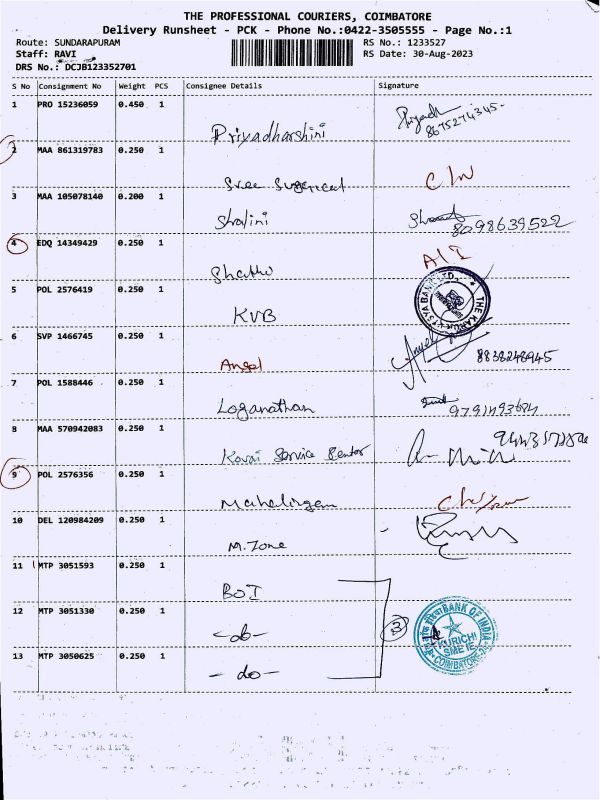 THE PROFESSIONAL COURIERS, COIMBATORE
Delivery Runsheet - PCK - Phone No.:0422-3505555 - Page No.:1
Route: SUNDARAPURAM RS No.: 1233527
Staff: RAVI RS Date: 30-Aug-2023
DRS No.: DCJB123352701
S No Consignment No Weight PCS Consignee Details Signature
1 PRO 15236059 0.450 1
Priyadharshini Priyadh 8675274345
2 MAA 861319783 0.250 1
Sree Surgical C/W
3 MAA 105078140 0.200 1
Shalini 8098639522
4 EDQ 14349429 0.250 1
A/I
5 POL 2576419 0.250 1
KVB THE KARUR VYSYA BANK LTD.
6 SVP 1466745 0.250 1
Angel 8838248945
7 POL 1588446 0.250 1
Loganathan
8 MAA 570942083 0.250 1
Kovai Service Center
9 POL 2576356 0.250 1
Mahalingam
10 DEL 120984209 0.250 1
M.Zone
11 MTP 3051593 0.250 1
BOI
12 MTP 3051330 0.250 1
-do- 3 BANK OF INDIA KURICHI SME IE COIMBATORE
13 MTP 3050625 0.250 1
-do-